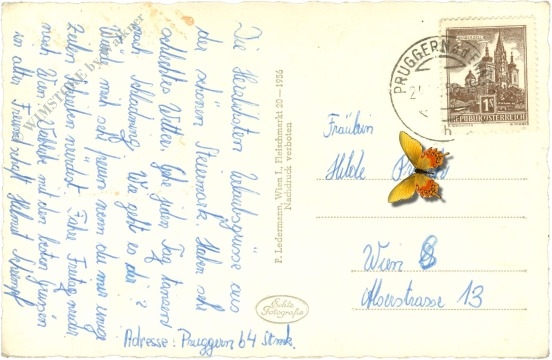 Die Herzlichsten Urlaubsgrüsse aus
der schönen Steiermark. Haben sehr
schlechtes Wetter. Gehe jeden Tag tanzen
nach Schladming. Wie geht es dir?
Würde mich sehr freuen wenn du mir einige
Zeilen schreiben würdest. Fahre Freitag wieder
nach Wien. Verbleibe mit den besten Grüssen
in alter Freundschaft Helmut
Adresse: Pruggern 64 Stmk.
P. Ledermann, Wien I, Fleischmarkt 20—1956
Nachdruck verboten
Echte
Fotografie
PRUGGERN
1S
REPUBLIK ÖSTERREICH
Fräulein
Hilde
Wien 8
Alserstrasse 13